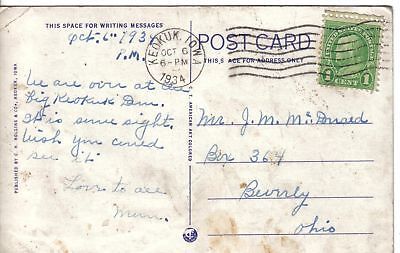 THIS SPACE FOR WRITING MESSAGES
Oct. 6th 1934
P.M.
We are over at the
big Keokuk Dam.
It is some sight.
Wish you could
see it.
Love to all
Mum.
PUBLISHED BY C. R. & CO., IOWA
C. T. AMERICAN ART COLORED
KEOKUK, IOWA
OCT 6
6-PM
1934
POST CARD
THIS SPACE FOR ADDRESS ONLY
1 CENT 1
Mr. J. M. McDonald
Box 364
Beverly
Ohio